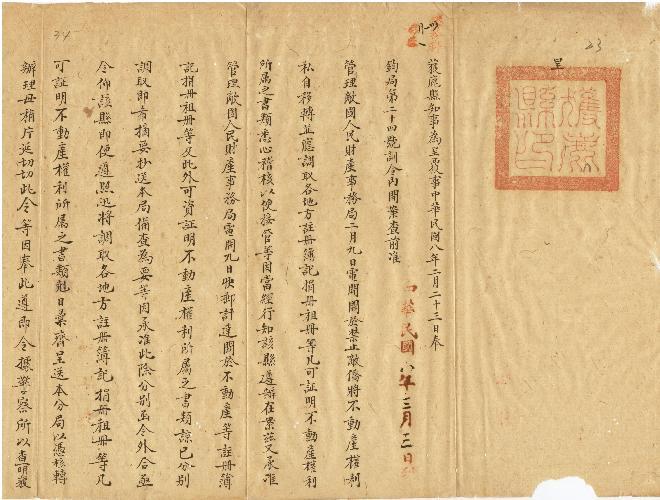 23
呈
獲鹿縣印
獲鹿縣知事為呈覆事中華民國八年二月二十三日奉
鈞局第二十四號訓令內開案查前准
中華民國八年三月三日
管理敵國人民財產事務局二月九日電開關於禁止敵僑將不動產權利
私自移轉並應調取各地方註冊簿記捐冊租冊等凡可証明不動產權利
所屬之書類悉心稽核以便接管等因當經行知該縣遵辦在案茲又承准
管理敵國人民財產事務局電開九日快郵計達關於不動產等註冊簿
記捐冊租冊等及此外可資証明不動產權利所屬之書類諒已分別
調取即希摘要抄送本局備查為要等因承准此除分別函令外合亟
令仰該縣即便遵照迅將調取各地方註冊簿記捐冊租冊等凡
可証明不動產權利所屬之書類尅日彙齊呈送本分局以憑核轉
辦理毋稍片延切切此令等因奉此遵即令據警察所以查明獲
34